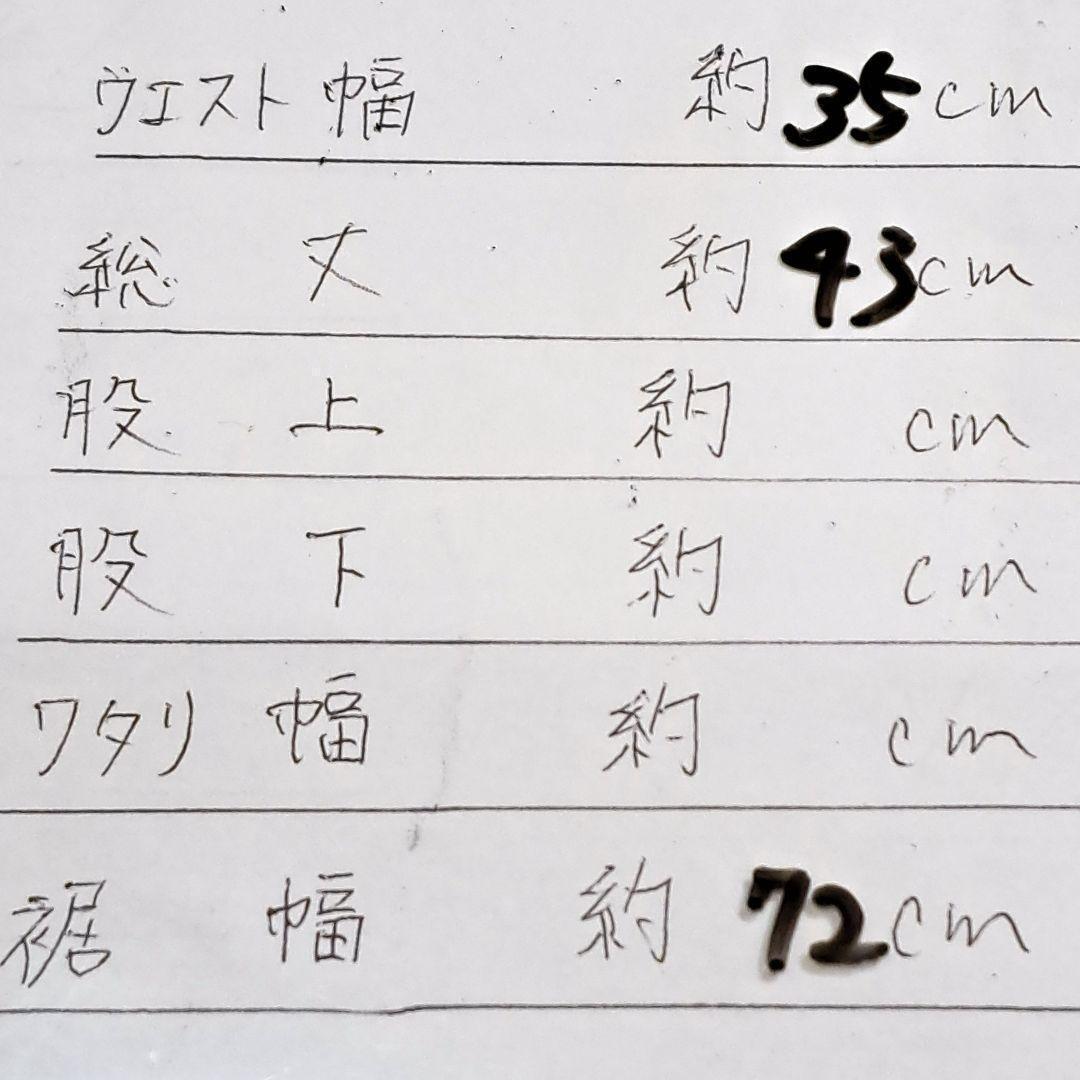 ウエスト幅 約35cm
総丈 約43cm
股上 約 cm
股下 約 cm
ワタリ幅 約 cm
裾幅 約72cm